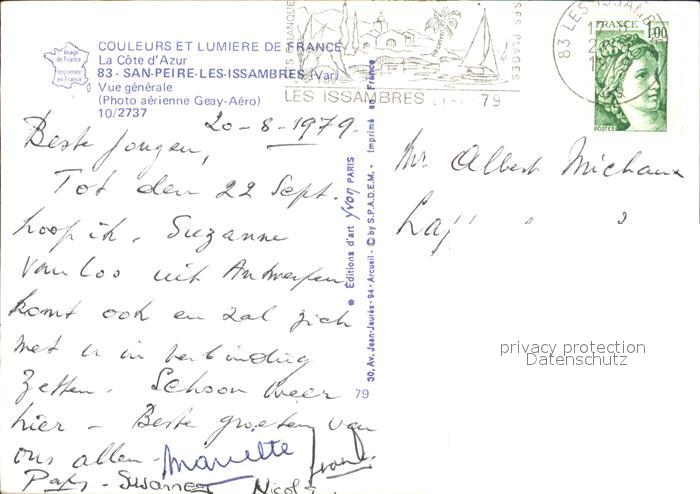 COULEURS ET LUMIERE DE FRANCE
La Côte d'Azur
83 - SAN-PEIRE-LES-ISSAMBRES (Var)
Vue générale
(Photo aérienne Geay-Aéro)
10/2737
Image de France
Imprimée en France
LES ISSAMBRES
79
SES PLAGES
83 LES ISSAMB
FRANCE
1,00
POSTES
20-8-1979.
Beste Jongen,
Tot den 22 Sept.
hoop ik. Suzanne
van Loo uit Antwerpen
komt ook en zal zich
met u in verbinding
zetten. Schoon weer
hier - Beste groeten van
ons allen - Mariette
Papy - Suzanne Nicole
Éditions d'art yvon PARIS
30, Av. Jean-Jaurès - 94 - Arcueil - © by S.P.A.D.E.M. - Imprimé en France
79
Mr Albert Michaux
privacy protection
Datenschutz